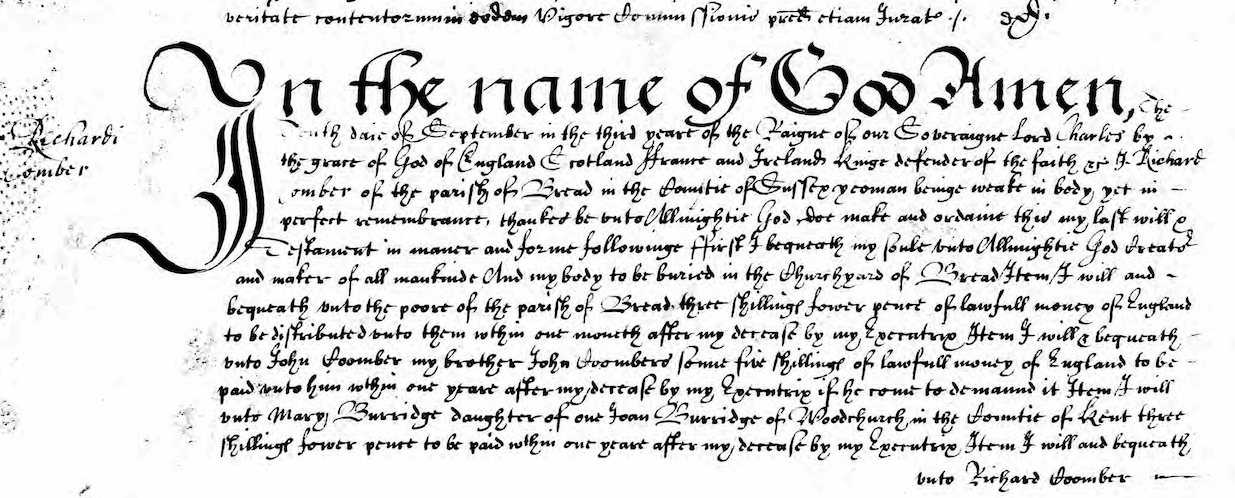 veritate contentorum in eodem Vigore Commissionis pred etiam Jurat
In the name of God Amen, The
Richardi
Comber
tenth daie of September in the third yeare of the Raigne of our Soveraigne Lord Charles by
the grace of God of England Scotland ffrance and Ireland Kinge defender of the faith &c I Richard
Comber of the parish of Bread in the Countie of Sussex yeoman beinge weake in body yet in
perfect remembrance, thankes be unto Allmightie God, doe make and ordaine this my last will &
Testament in maner and forme followinge ffirst I bequeath my soule unto Allmightie God Creator
and maker of all mankinde And my body to be buried in the Churchyard of Bread Item I will and
bequeath unto the poore of the parish of Bread three shillings fower pence of lawfull money of England
to be distributed unto them wthin one moneth after my decease by my Executrix Item I will & bequeath
unto John Coomber my brother John Coombers sonne five shillings of lawfull money of England to be
paid unto him wthin one yeare after my decease by my Executrix if he come to demaund it Item I will
unto Mary Burridge daughter of one Joan Burridge of Woodchurch in the Countie of Kent three
shillings fower pence to be paid wthin one yeare after my decease by my Executrix Item I will and bequeath
unto Richard Coomber